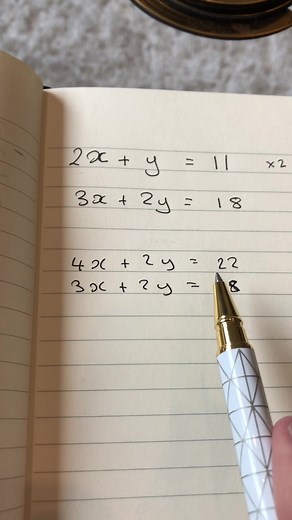 2x + y = 11 ×2
3x + 2y = 18
4x + 2y = 22
3x + 2y = 8